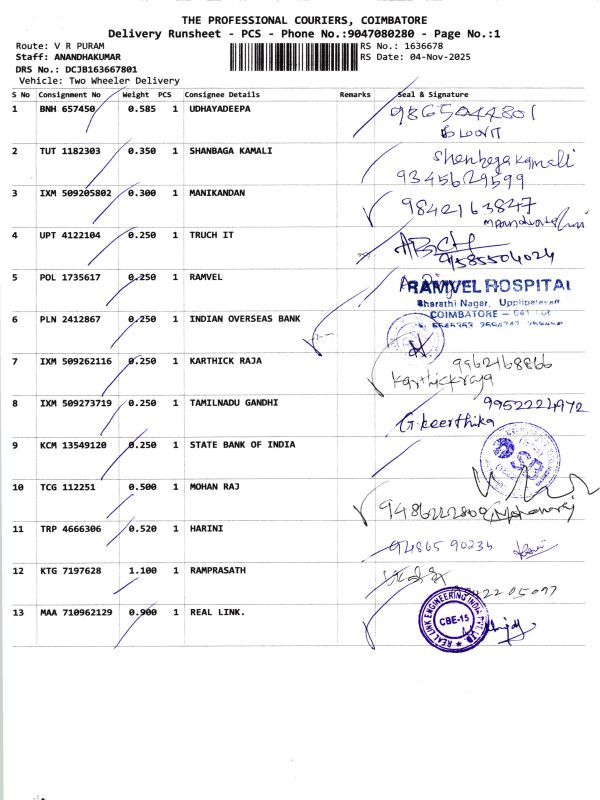 THE PROFESSIONAL COURIERS, COIMBATORE
Delivery Runsheet - PCS - Phone No.:9047080280 - Page No.:1
Route: V R PURAM
RS No.: 1636678
Staff: ANANDHAKUMAR
RS Date: 04-Nov-2025
DRS No.: DCJB163667801
Vehicle: Two Wheeler Delivery
S No Consignment No Weight PCS Consignee Details Remarks Seal & Signature
1 BNH 657450 0.585 1 UDHAYADEEPA 9865044801
2 TUT 1182303 0.350 1 SHANBAGA KAMALI Shenbaga kamali
9345629599
3 IXM 509205802 0.300 1 MANIKANDAN 9842163847
4 UPT 4122104 0.250 1 TRUCH IT
9585504024
5 POL 1735617 0.250 1 RAMVEL RAMVEL HOSPITAL
Bharathi Nagar, Uppilipalayam
COIMBATORE - 641
6 PLN 2412867 0.250 1 INDIAN OVERSEAS BANK
7 IXM 509262116 0.250 1 KARTHICK RAJA 9962168866
Karthickraja
8 IXM 509273719 0.250 1 TAMILNADU GANDHI 9952224972
G. keerthika
9 KCM 13549120 0.250 1 STATE BANK OF INDIA
10 TCG 112251 0.500 1 MOHAN RAJ 9486222809 Mohanraj
11 TRP 4666306 0.520 1 HARINI 9486590234
12 KTG 7197628 1.100 1 RAMPRASATH
2205097
13 MAA 710962129 0.900 1 REAL LINK. REAL LINK ENGINEERING INDIA PVT LTD
CBE-15